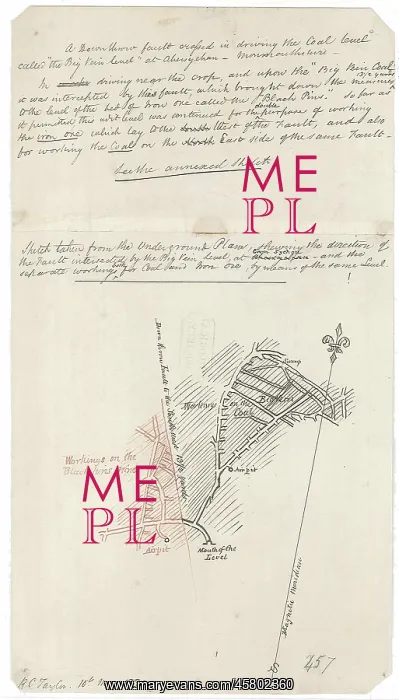 A Downthrow fault crossed in driving the Coal Level
called the "Big Vein Level" at Abersychan - Monmouthshire
In driving near the crop, and upon the "Big Vein Coal"
it was intercepted by this fault, which brought down the measures 13½ yards
to the level of the bed of Iron ore called the "Black Pins" so far as
it permitted this adit Level was continued for the purpose of working
the iron ore which lay to the West of the Fault, and also
for working the Coal on the East side of the same Fault.
See the annexed Sketch
ME
PL
Sketch taken from the Underground Plans, shewing the direction of
the Fault intersected by the Big Vein Level, at - and the
separate workings, both for Coal and Iron ore, by means of the same Level.
Down throw Fault to the 13½ yards
Workings on the Big Vein Coal
Airpit
Workings on the
Black Pins Mine
ME
PL
Airpit
Mouth of the
Level
Magnetic Meridian
R.C. Taylor. 10th
257
www.maryevans.com/45802360